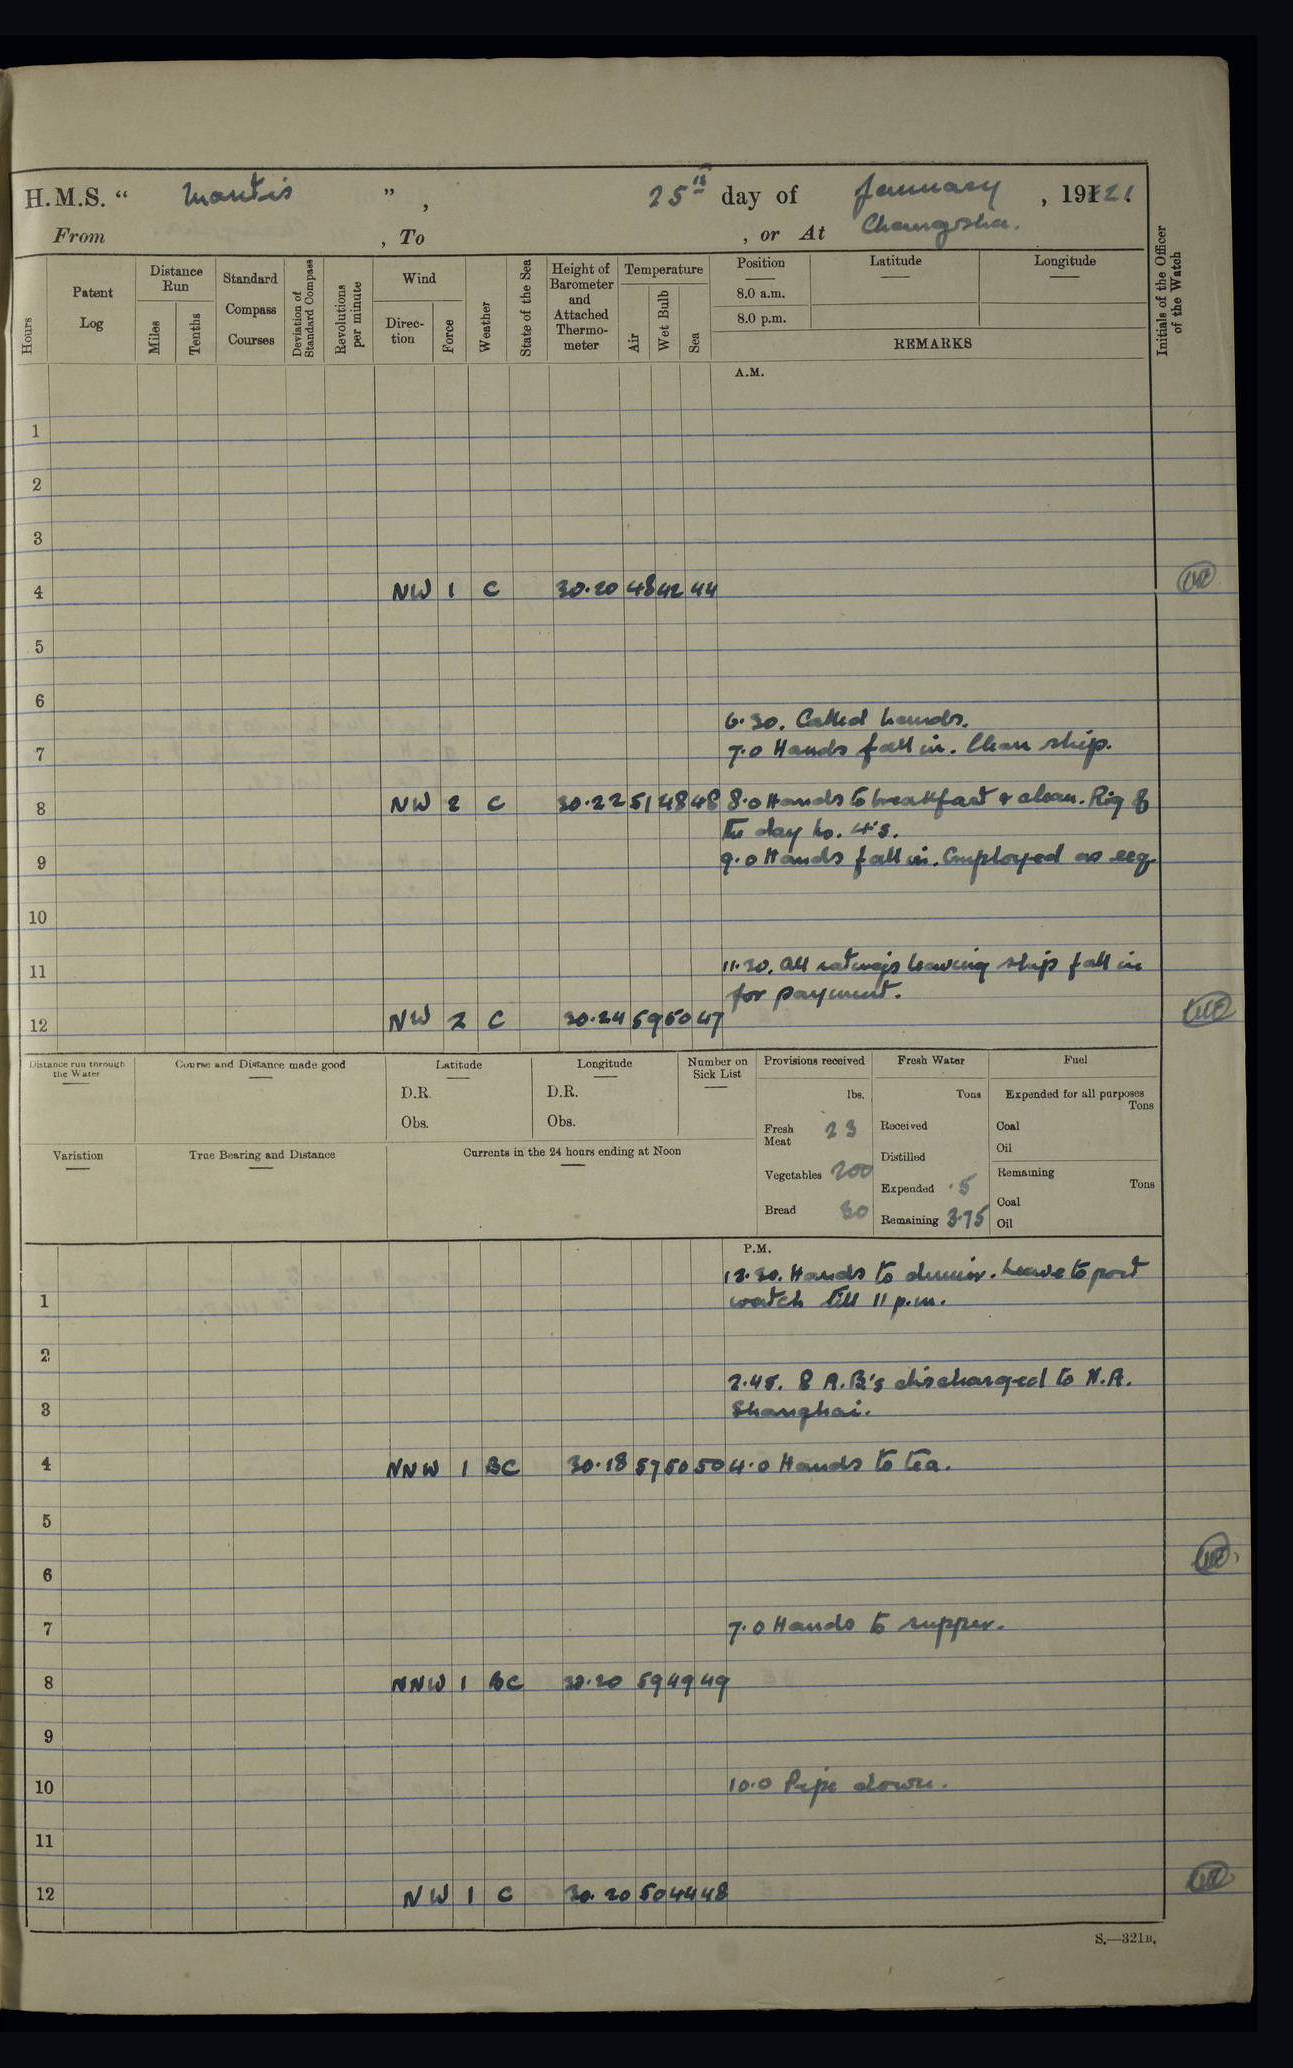 H.M.S. " Mantis ", 25th day of January, 1921
From , To , or At Changsha.
Hours
Patent Log
Distance Run
Miles
Tenths
Standard Compass Courses
Deviation of Standard Compass
Revolutions per minute
Wind
Direc-tion
Force
Weather
State of the Sea
Height of Barometer and Attached Thermo-meter
Temperature
Air
Wet Bulb
Sea
Position
8.0 a.m.
8.0 p.m.
Latitude
Longitude
REMARKS
Initials of the Officer of the Watch
A.M.
1
2
3
4 NW 1 C 30.20 48 42 44
5
6
6.30. Called hands.
7 7.0 Hands fall in. Clean ship.
8 NW 2 C 30.22 51 48 48 8.0 Hands to breakfast & clean. Rig of
the day No. 4's.
9 9.0 Hands fall in. Employed as req
10
11 11.30. All ratings leaving ship fall in
for payment.
12 NW 2 C 30.24 59 50 47
Distance run through the Water
Course and Distance made good
Latitude
D.R.
Obs.
Longitude
D.R.
Obs.
Number on Sick List
Provisions received
lbs.
Fresh Meat 23
Vegetables 200
Bread 30
Fresh Water
Tons
Received
Distilled
Expended .5
Remaining 3.75
Fuel
Expended for all purposes
Tons
Coal
Oil
Remaining
Tons
Coal
Oil
Variation
True Bearing and Distance
Currents in the 24 hours ending at Noon
P.M.
12.30. Hands to dinner. Leave to port
1 watch till 11 p.m.
2
2.45. 8 A.B.'s discharged to N.A.
3 Shanghai.
4 NNW 1 BC 30.18 57 50 50 4.0 Hands to tea.
5
6
7 7.0 Hands to supper.
8 NNW 1 BC 30.20 59 49 49
9
10 10.0 Pipe down.
11
12 NW 1 C 30.20 50 44 48
S.—321B.